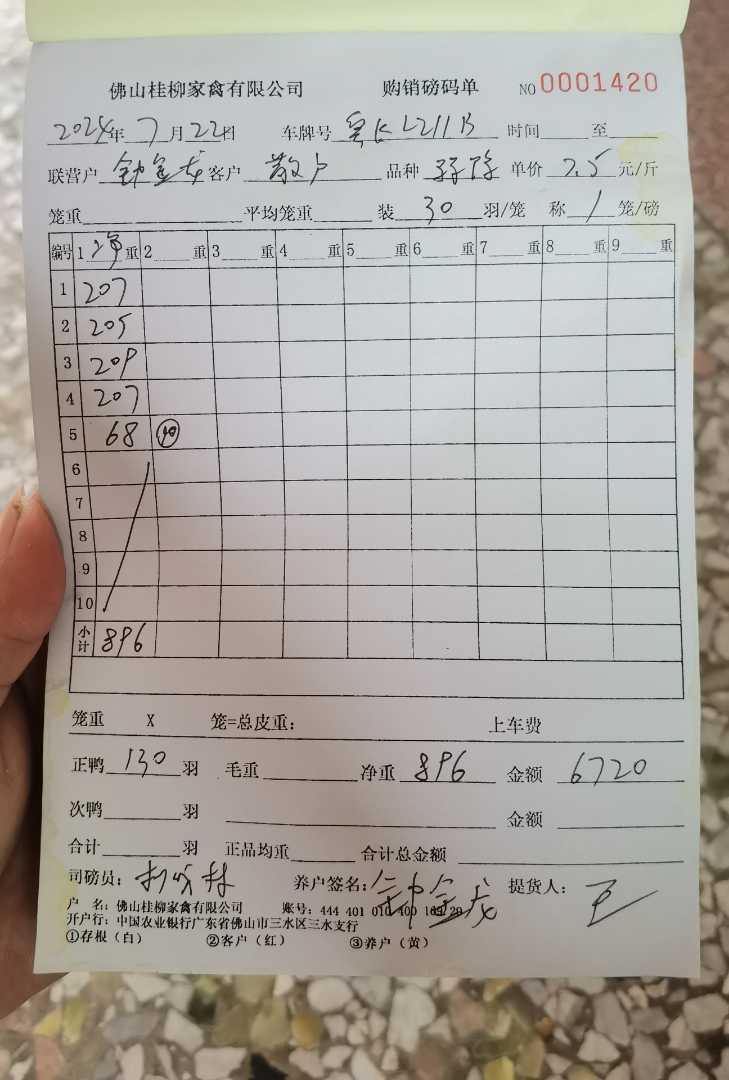 佛山桂柳家禽有限公司 购销磅码单 NO 0001420
2024年 7月 22日 车牌号 粤 L211B 时间 至
联营户 钟金龙 客户 散户 品种 单价 7.5 元/斤
笼重 平均笼重 装 30 羽/笼 称 1 笼/磅
编号 1 净 重 2 重 3 重 4 重 5 重 6 重 7 重 8 重 9 重
1 207
2 205
3 209
4 207
5 68 10
6
7
8
9
10
小计 896
笼重 X 笼=总皮重: 上车费
正鸭 130 羽 毛重 净重 896 金额 6720
次鸭 羽 金额
合计 羽 正品均重 合计总金额
司磅员: 养户签名: 钟金龙 提货人:
户 名: 佛山桂柳家禽有限公司 账号: 444 401 010 400
开户行: 中国农业银行广东省佛山市三水区三水支行
①存根(白) ②客户(红) ③养户(黄)